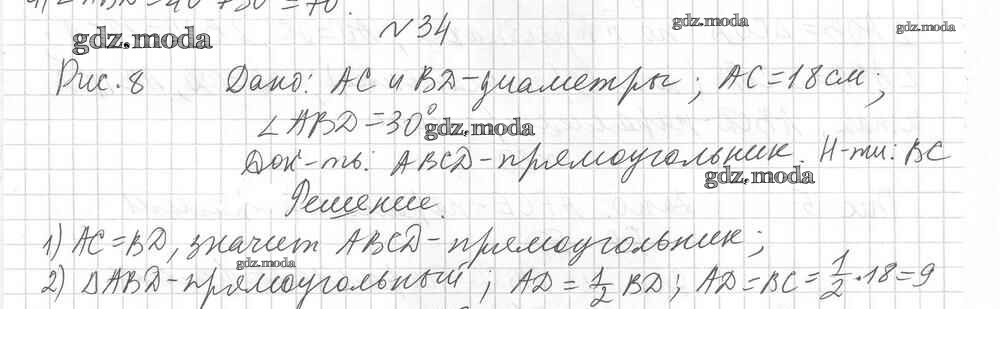 ∠ABD=40°+30°=70°.
№34
gdz.moda gdz.moda gdz.moda
Рис.8 Дано: AC и BD-диаметры; AC=18см;
∠ABD=30° gdz.moda
Док-ть: ABCD-прямоугольник. Н-ти: BC
gdz.moda
Решение.
1) AC=BD, значит ABCD-прямоугольник;
gdz.moda
2) ΔABD-прямоугольный; AD=1/2 BD; AD=BC=1/2·18=9